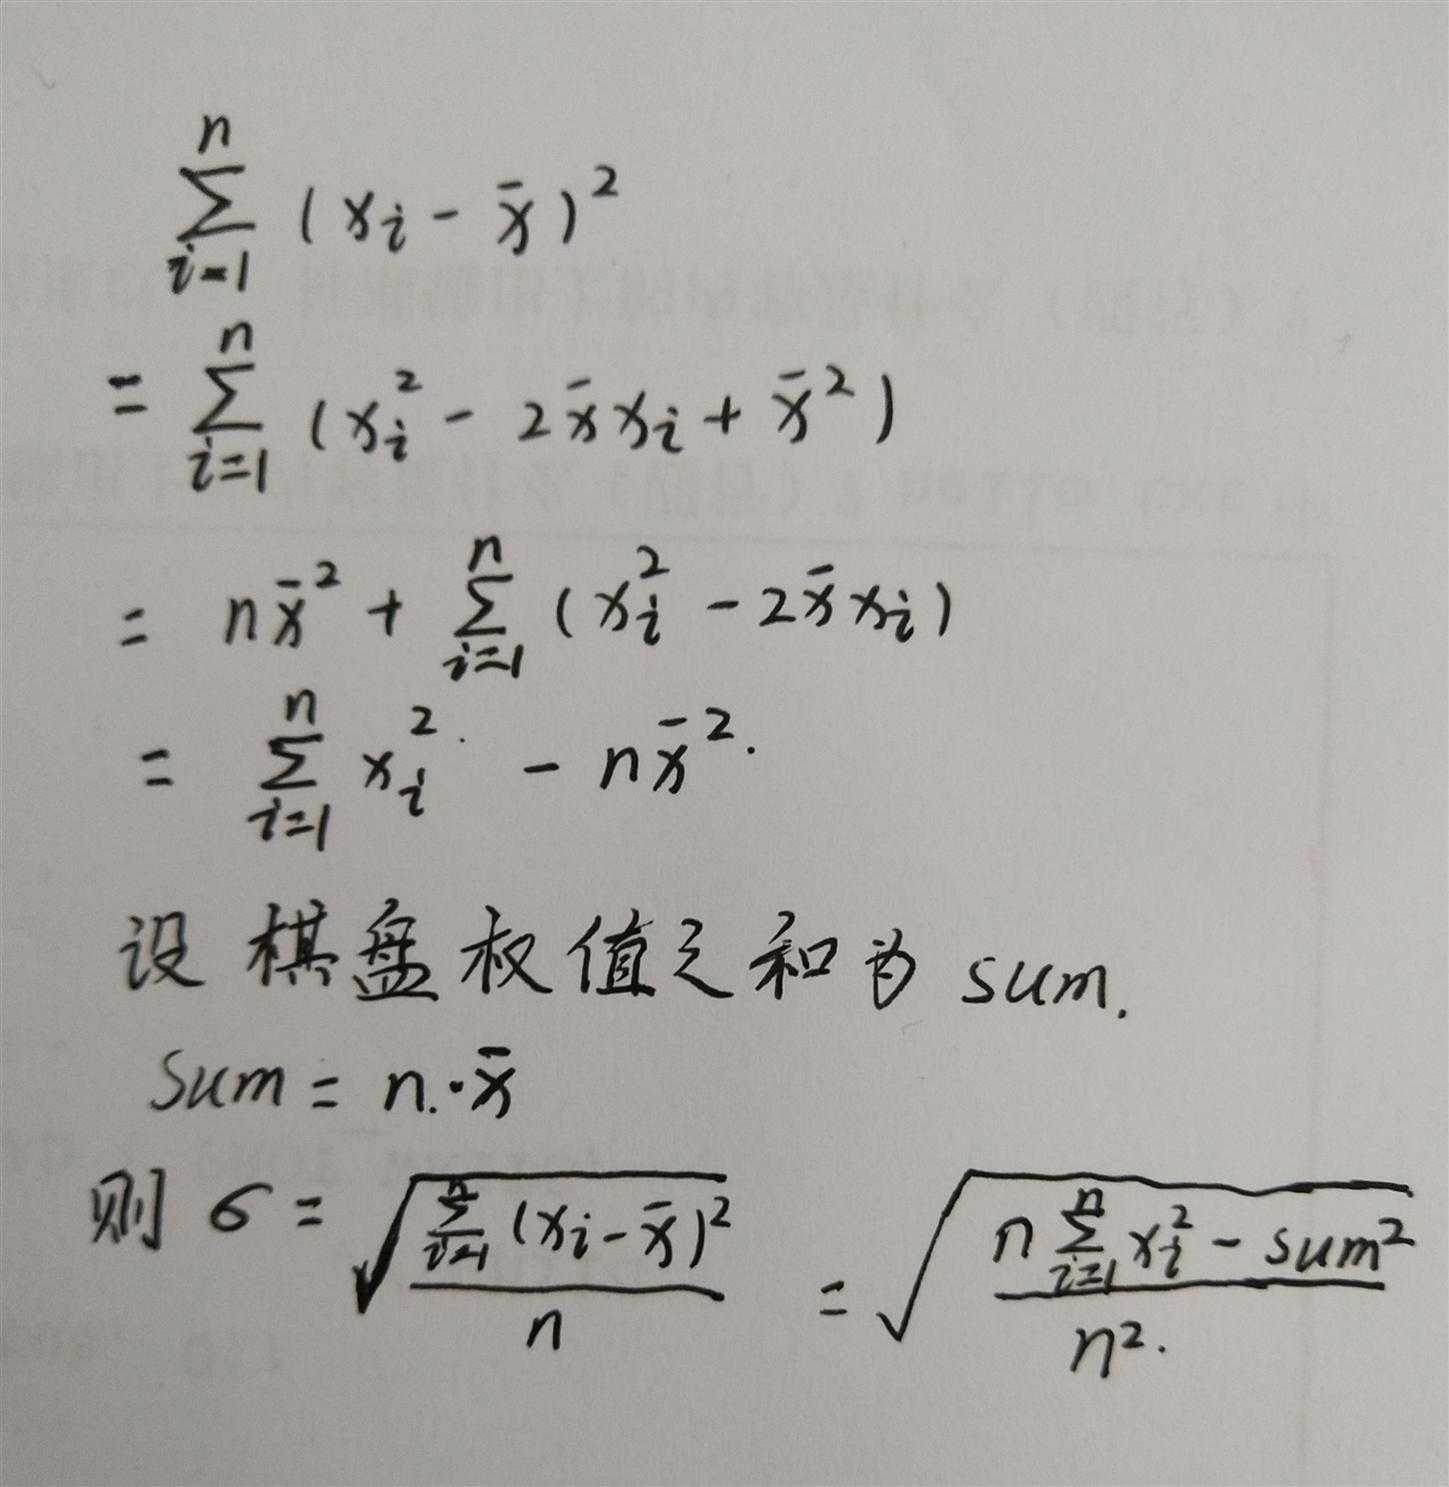 $\sum_{i=1}^{n} (x_i - \bar{x})^2$
$= \sum_{i=1}^{n} (x_i^2 - 2\bar{x}x_i + \bar{x}^2)$
$= n\bar{x}^2 + \sum_{i=1}^{n} (x_i^2 - 2\bar{x}x_i)$
$= \sum_{i=1}^{n} x_i^2 - n\bar{x}^2.$
设棋盘权值之和为 sum.
$Sum = n \cdot \bar{x}$
则 $\sigma = \sqrt{\frac{\sum_{i=1}^{n} (x_i - \bar{x})^2}{n}} = \sqrt{\frac{n\sum_{i=1}^{n} x_i^2 - sum^2}{n^2.}}$